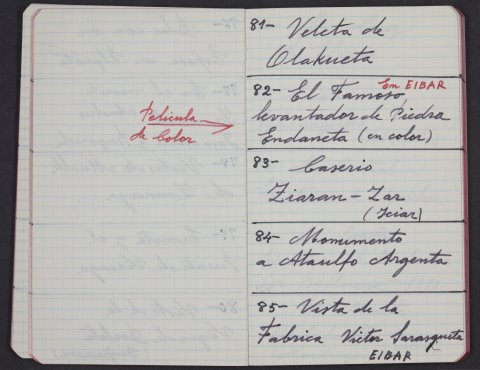 Película
de Color
81- Veleta de
Olakueta
82- El Famoso En EIBAR
levantador de Piedra
Endaneta (en color)
83- Caserio
Ziaran-Zar
(Iciar)
84- Monumento
a Ataulfo Argenta
85- Vista de la
Fabrica Victor Sarasqueta
EIBAR